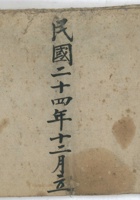 民國二十四年十二月立